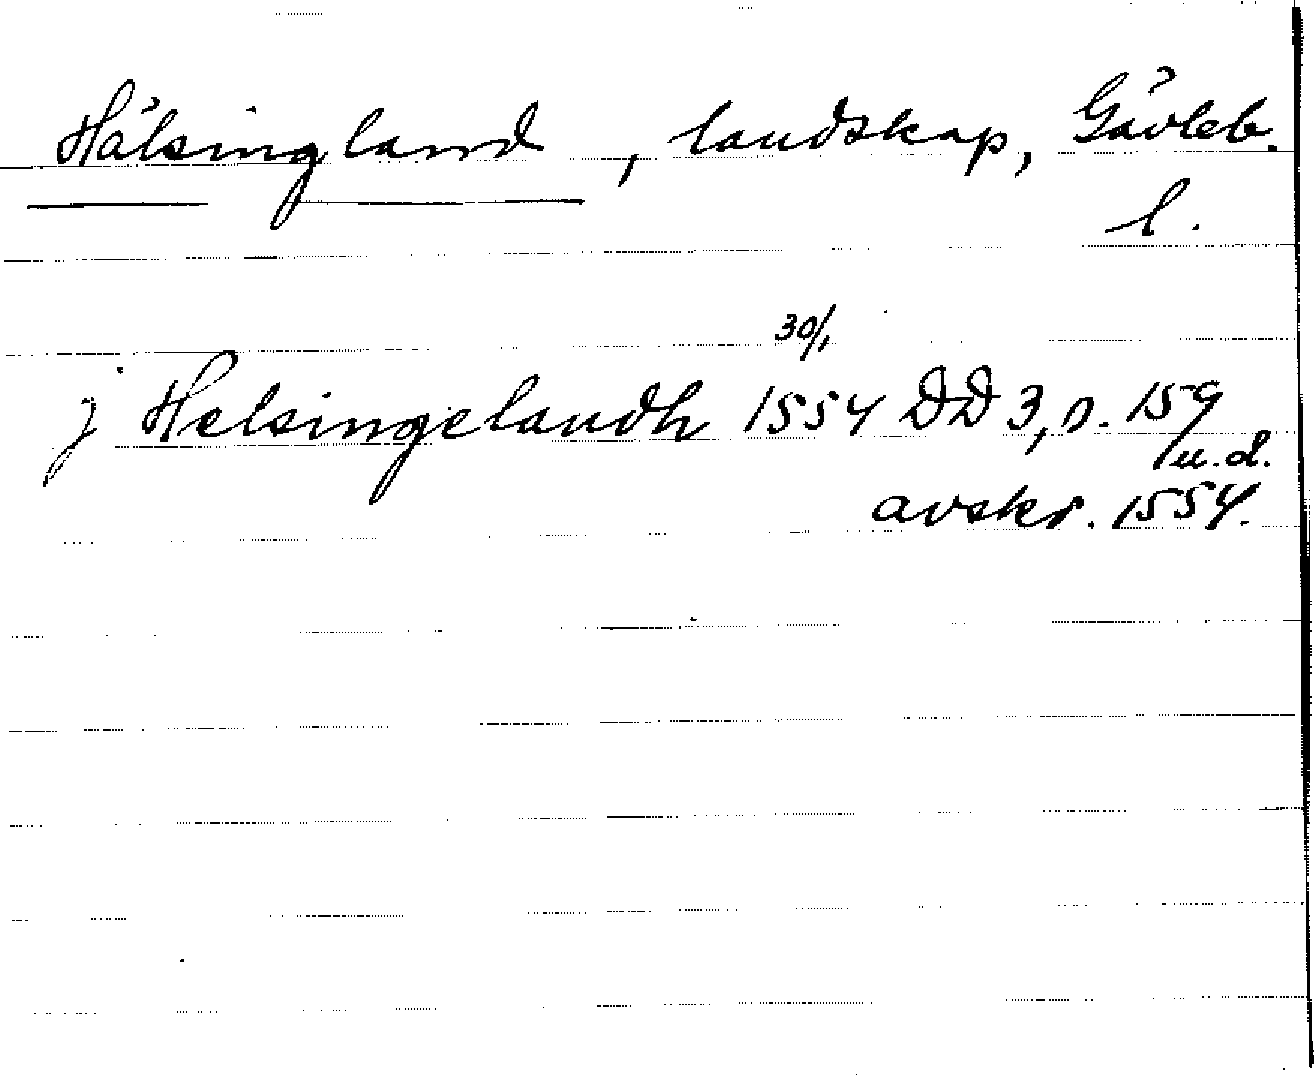 Hälsingland, landskap, Gävleb.
l.
30/1
j Helsingelandh 1554 DD 3, n. 159
u.d.
avskr. 1554.